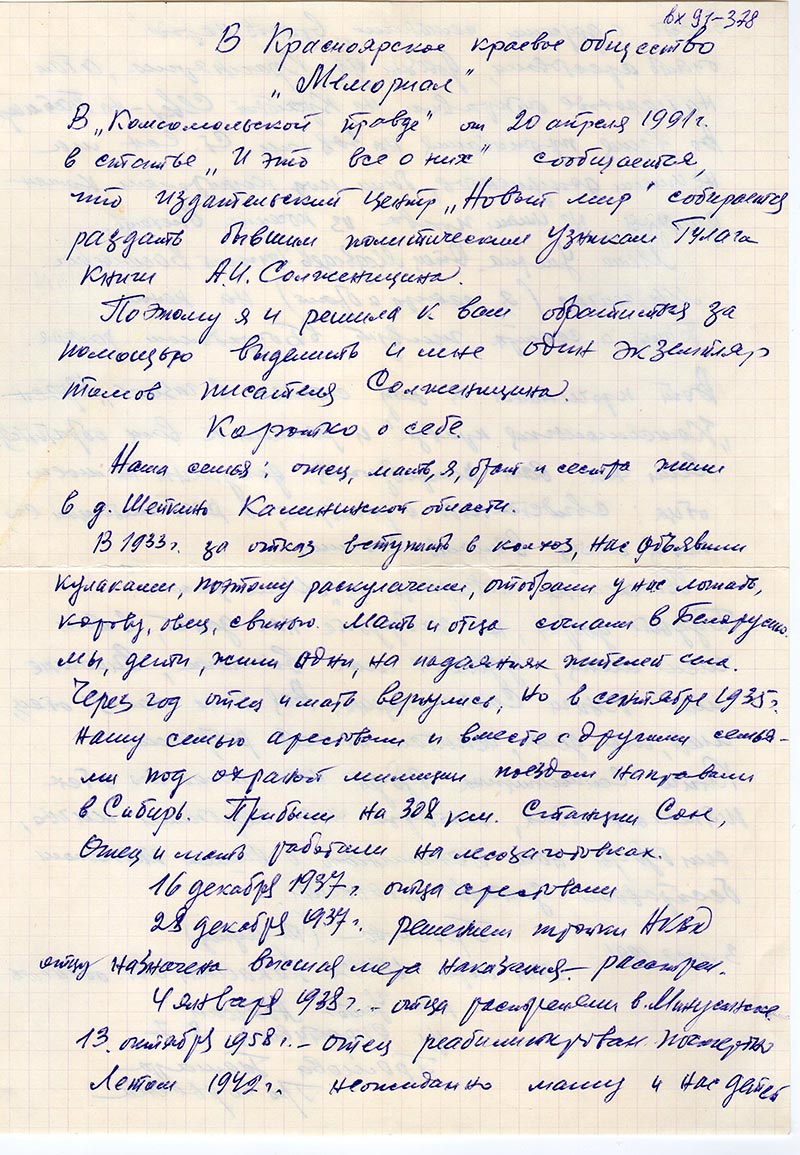 вх 91-378
В Красноярское краевое общество
„Мемориал"
В „Комсомольской правде" от 20 апреля 1991г.
в статье „И это все о них" сообщается,
что издательский центр „Новый мир" собирается
раздать бывшим политическим узникам Гулага
книги А.И. Солженицина.
Поэтому я и решила к вам обратиться за
помощью выделить и мне один экземпляр
томов писателя Солженицина.
Коротко о себе.
Наша семья: отец, мать, я, брат и сестра жили
в д. Шеткино Калининской области.
В 1933г. за отказ вступить в колхоз, нас объявили
кулаками, поэтому раскулачили, отобрали у нас лошадь,
корову, овец, свинью. Мать и отца сослали в Белорусию.
Мы, дети, жили одни, на подаяниях жителей села.
Через год отец и мать вернулись, но в сентябре 1935г.
нашу семью арестовали и вместе с другими семья-
ми под охраной милиции поездом направили
в Сибирь. Прибыли на 308 км. Станции Сон,
Отец и мать работали на лесозаготовках.
16 декабря 1937г. отца арестовали
28 декабря 1937г. решением тройки НКВД
отцу назначена высшая мера наказания - расстрел.
4 января 1938г. - отца расстреляли в г. Минусинске.
13. октября 1958г. - отец реабилитирован посмертно
Летом 1942г. неожиданно маму и нас детей